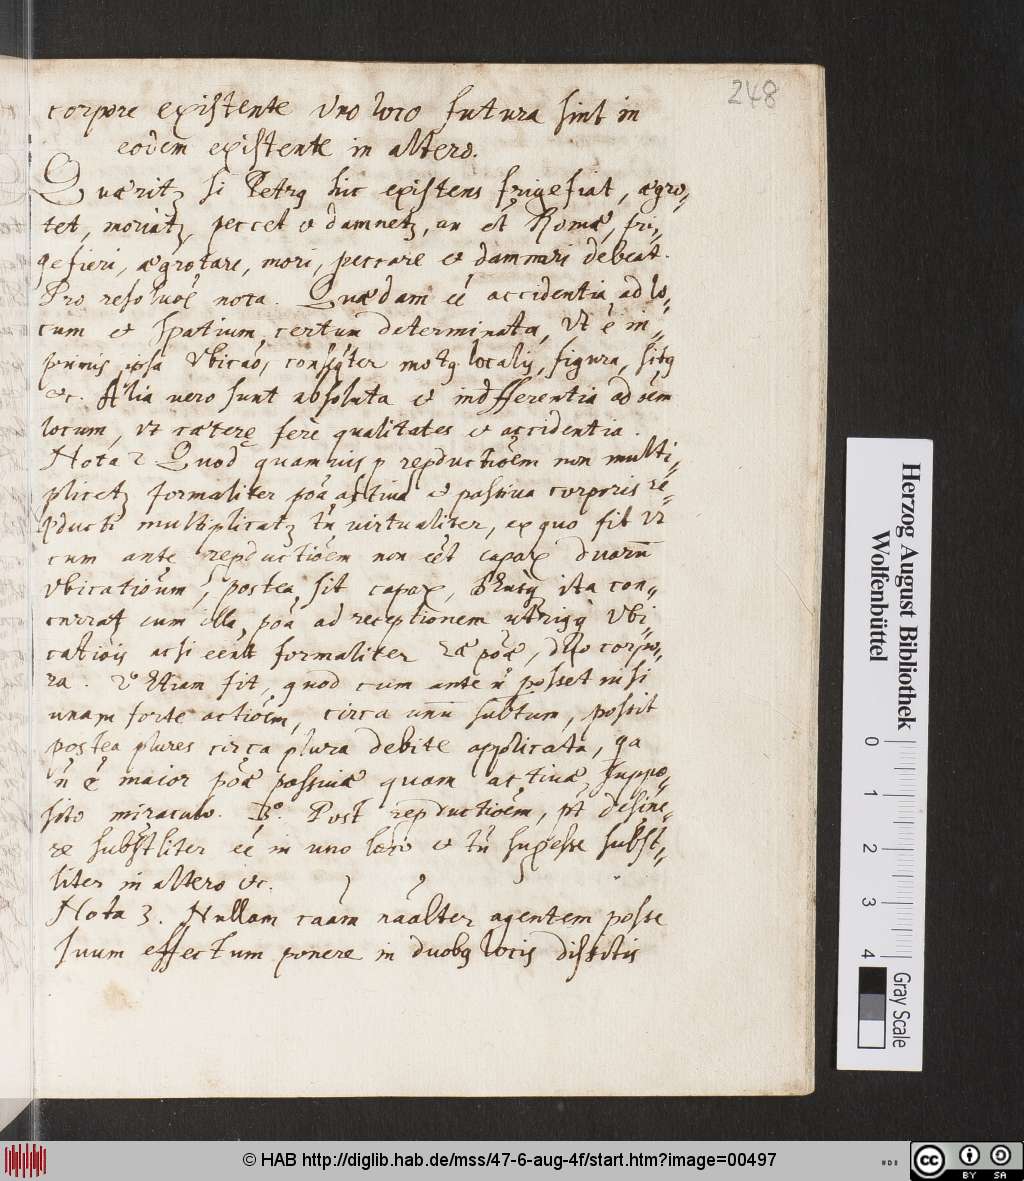 248
corpore existente Vno loco futura sint in
eodem existente in altero.
Quæritꝫ si Petrꝰ hic existens frigefiat, ægro=
tet, moriatꝫ, peccet et damnetꝫ, an et Romæ, fri=
gefieri, ægrotare, mori, peccare et damnari debeat.
Pro resoluõẽ nota. Quædam eẽ accidentia ad lo=
cum et spatium certum determinata, Vt ẽ in=
primis ipsa Vbicaõ, consqter motꝰ localis, figura, sitꝰ
etc. Alia vero sunt absoluta et indifferentia ad oẽm
locum, vt cæteræ ferè qualitates et accidentia.
Nota 2 Quod quamuis p repductiõem non multi=
plicetꝫ formaliter poã actiua et passiua corporis re=
pducti multiplicatꝫ tñ virtualiter, ex quo fit vt
cum ante repductiõem non eẽt capax duarũ
Vbicatioũm, postea sit capax, Deusꝗ ita con=
currat cum illa poã ad receptionem utriusꝗ Vbi=
catiõis acsi eẽnt formaliter 2æ poæ, duo corpo=
ra. 2º Etiam fit, quod cum ante ñ posset nisi
unam forte actiõem, circa unũ subtum, possit
postea plures circa plura debite applicata, qa
ñ ẽ maior poæ passiuæ quam actiuæ, suppo=
sito miraculo. 3º. Post repductiõem, pt desine=
re substliter eẽ in uno loco et tñ supesse subst=
liter in altero etc.
Nota 3. Nullam caãm naãlter agentem posse
suum effectum ponere in duobꝰ locis distitis
Herzog August Bibliothek
Wolfenbüttel
0 1 2 3 4
Gray Scale
© HAB http://diglib.hab.de/mss/47-6-aug-4f/start.htm?image=00497
cc BY SA